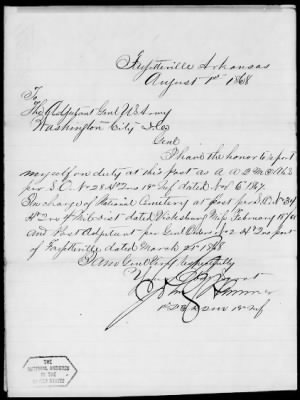 Fayetteville Arkansas
August 1st 1868
To
The Adjutant Genl U.S. Army
Washington City D.C.
Genl
I have the honor to report
myself on duty at this post as A A Q M & A C S
per S.O. No 28 Hd Qrs 19" Inf dated Nov 6" 1867.
In charge of National Cemetery at post per S.O. No 34
Hd Qrs 4" Mil Dist dated Vicksburg Miss February 18/68
and Post Adjutant per Genl Orders No 2 Hd Qrs post
of Fayetteville dated March 25" 1868
I am Genl Very respectfully
Your Obt Servt
1st Lt 19" Inf
THE
NATIONAL ARCHIVES
OF THE
UNITED STATES